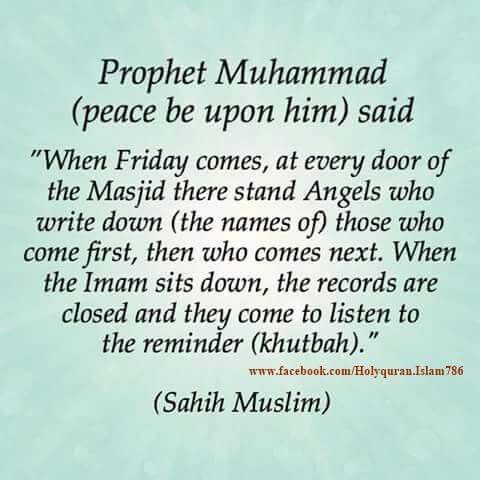 Prophet Muhammad
(peace be upon him) said
"When Friday comes, at every door of
the Masjid there stand Angels who
write down (the names of) those who
come first, then who comes next. When
the Imam sits down, the records are
closed and they come to listen to
the reminder (khutbah)."
www.facebook.com/Holyquran.Islam786
(Sahih Muslim)